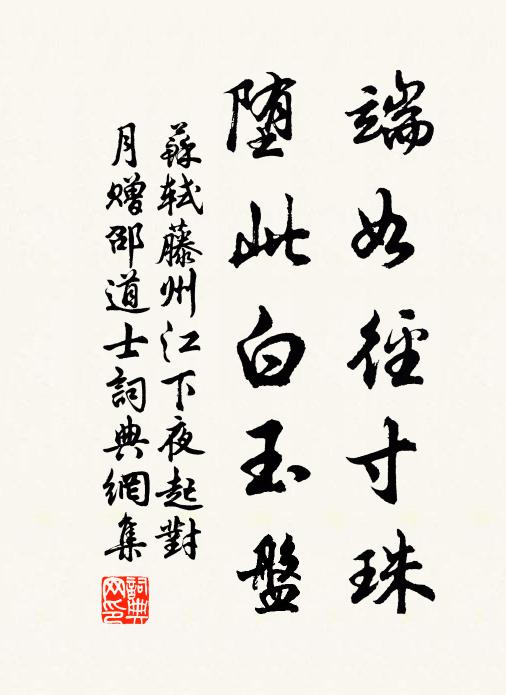 端如徑寸珠
堕此白玉盤
蘇軾藤州江下夜起對
月贈邵道士詞典網集
詞典
网印